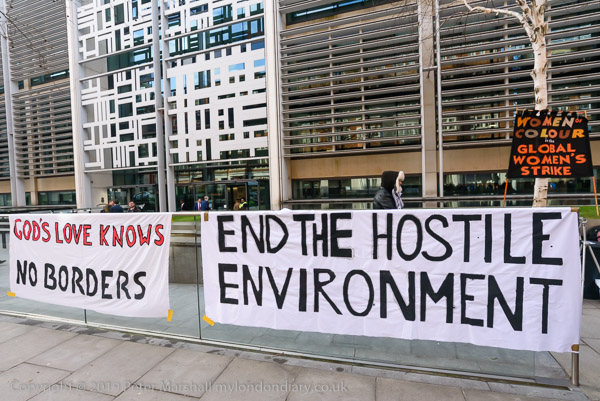 GOD'S LOVE KNOWS
NO BORDERS
END THE HOSTILE
ENVIRONMENT
WOMEN OF
COLOUR
GLOBAL
WOMEN'S
STRIKE
Copyright © 2019 Peter Marshall mylondondiary.co.uk